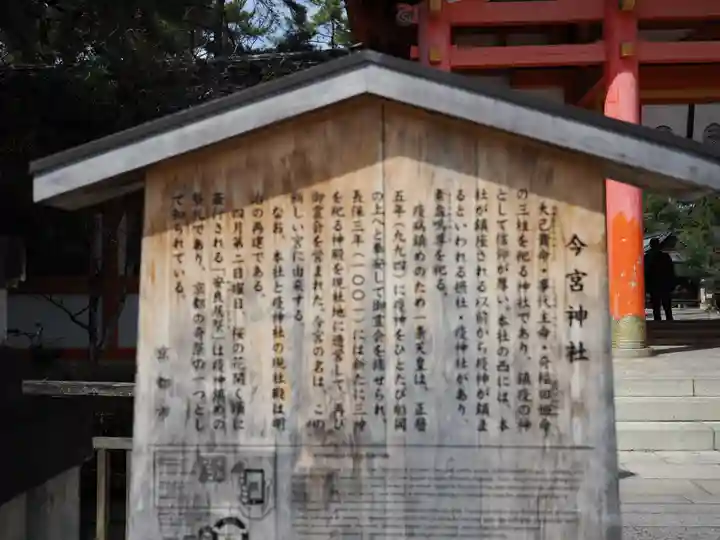 今宮神社
大己貴命・事代主命・奇稲田姫命
の三柱を祀る神社であり、鎮疫の神
として信仰が厚い。本社の西には、本
社が鎮座される以前から疫神が鎮ま
るといわれる摂社・疫神社があり、
素盞嗚尊を祀る。
疫病鎮めのため一条天皇は、正暦
五年(九九四)に疫神をひとたび船岡
の上へと奉安して御霊会を修せられ、
長保三年(一〇〇一)には新たに三神
を祀る神殿を現社地に造営して、再び
御霊会を営まれた。今宮の名は、この
新しい宮に由来する。
なお、本社と疫神社の現社殿は明
治の再建である。
四月第二日曜日、桜の花開く頃に
斎行される「安良居祭」は疫神鎮めの
祭礼であり、京都の奇祭の一つとし
て知られている。
京都市